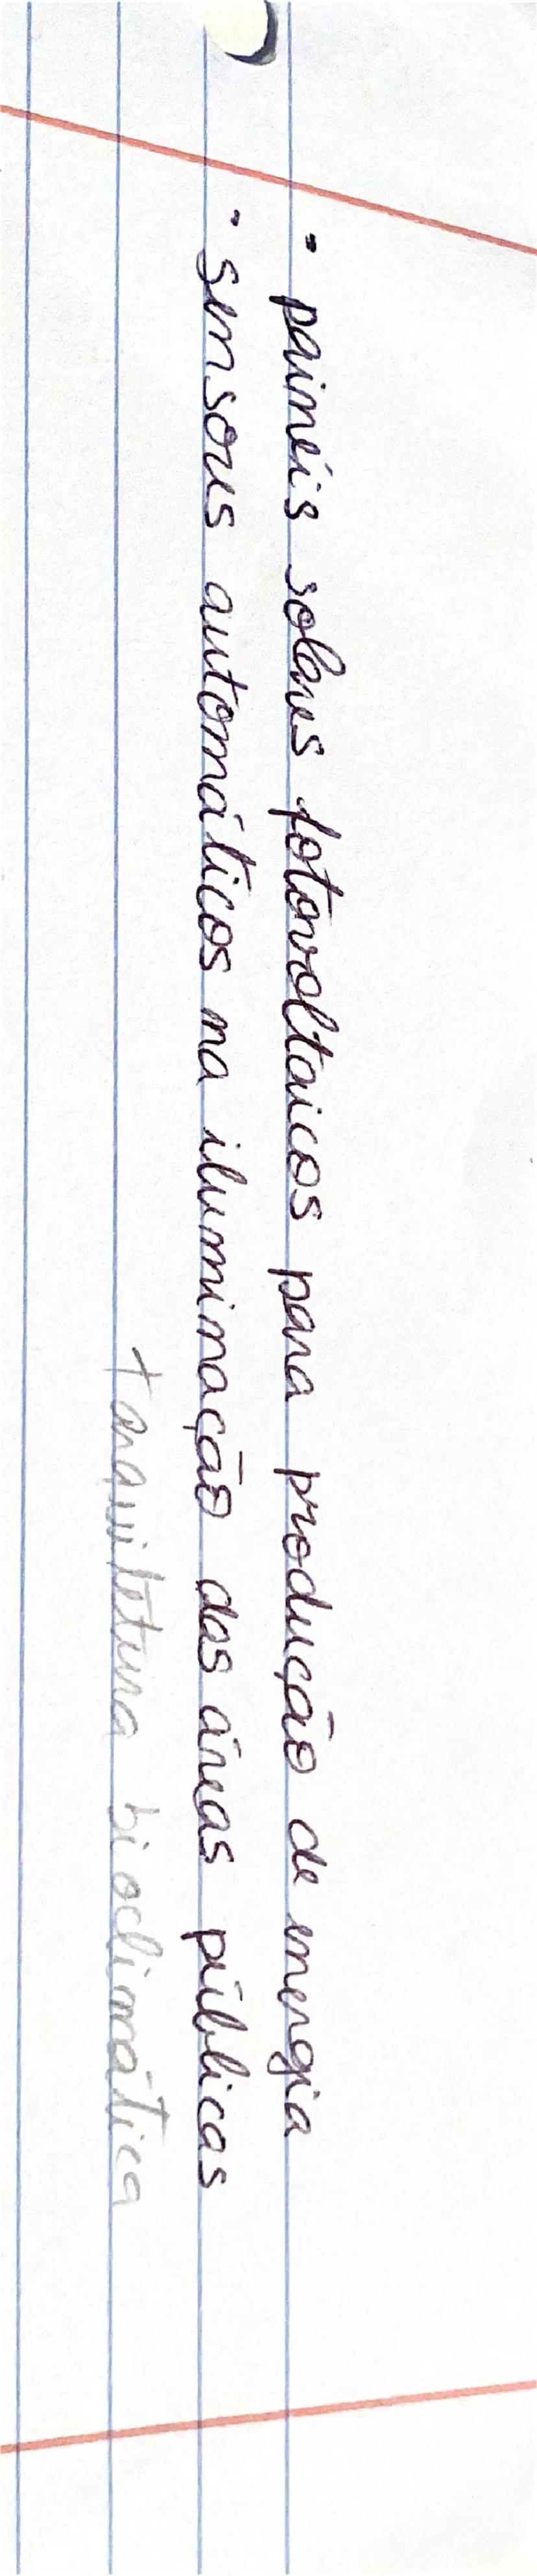 • painéis solares fotovoltaicos para produção de energia
• sensores automáticos na iluminação das áreas públicas
+ arquitetura bioclimática